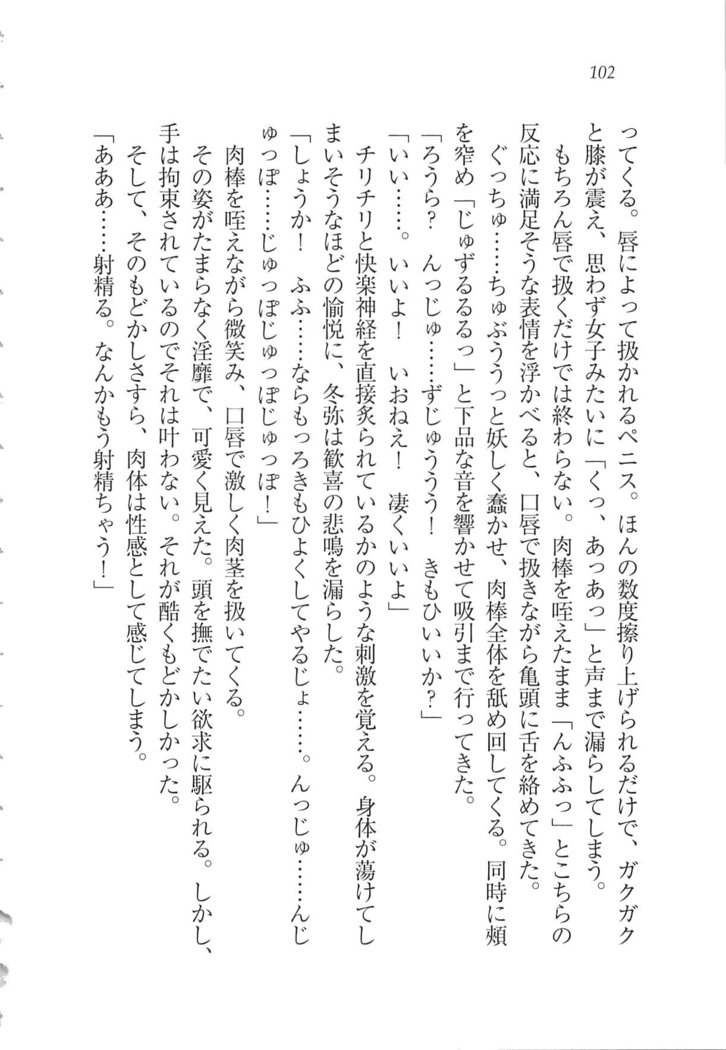 102
ってくる。唇によって扱かれるペニス。ほんの数度擦り上げられるだけで、ガクガク
と膝が震え、思わず女子みたいに「くっ、あっあっ」と声まで漏らしてしまう。
もちろん唇で扱くだけでは終わらない。肉棒を咥えたまま「んふふっ」とこちらの
反応に満足そうな表情を浮かべると、口唇で扱きながら亀頭に舌を絡めてきた。
ぐっちゅ……ちゅぶううっと妖しく蠢かせ、肉棒全体を舐め回してくる。同時に頰
を窄め「じゅずるるるっ」と下品な音を響かせて吸引まで行ってきた。
「ろうら？　んっじゅ……ずじゅううう！　きもひいいか？」
「いい……。いいよ！　いおねえ！　凄くいいよ」
チリチリと快楽神経を直接炙られているかのような刺激を覚える。身体が蕩けてし
まいそうなほどの愉悦に、冬弥は歓喜の悲鳴を漏らした。
「しょうか！　ふふ……ならもっろきもひよくしてやるじょ……。んっじゅ……んじ
ゅっぽ……じゅっぽじゅっぽじゅっぽ！」
肉棒を咥えながら微笑み、口唇で激しく肉茎を扱いてくる。
その姿がたまらなく淫靡で、可愛く見えた。頭を撫でたい欲求に駆られる。しかし、
手は拘束されているのでそれは叶わない。それが酷くもどかしかった。
そして、そのもどかしさすら、肉体は性感として感じてしまう。
「あああ……射精る。なんかもう射精ちゃう！」